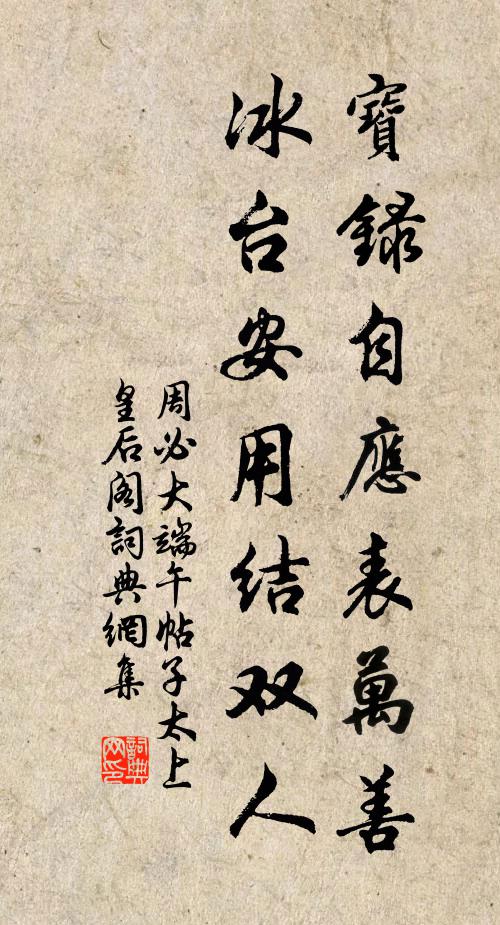 寶録自應表萬善
冰台安用结双人
周必大端午帖子太上
皇后阁詞典網集
詞典網印